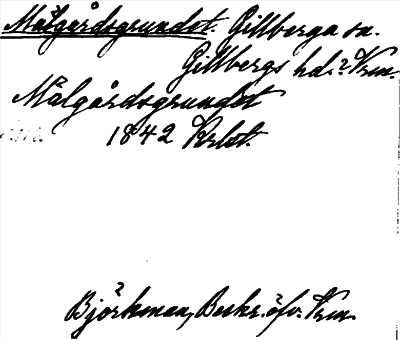 Målgårdsgrundet. Gillberga sn.
Gillbergs hd.? Vrm.
Målgårdsgrundet
1842 Krlst.
Björkman, Beskr. öfv. Vrm.